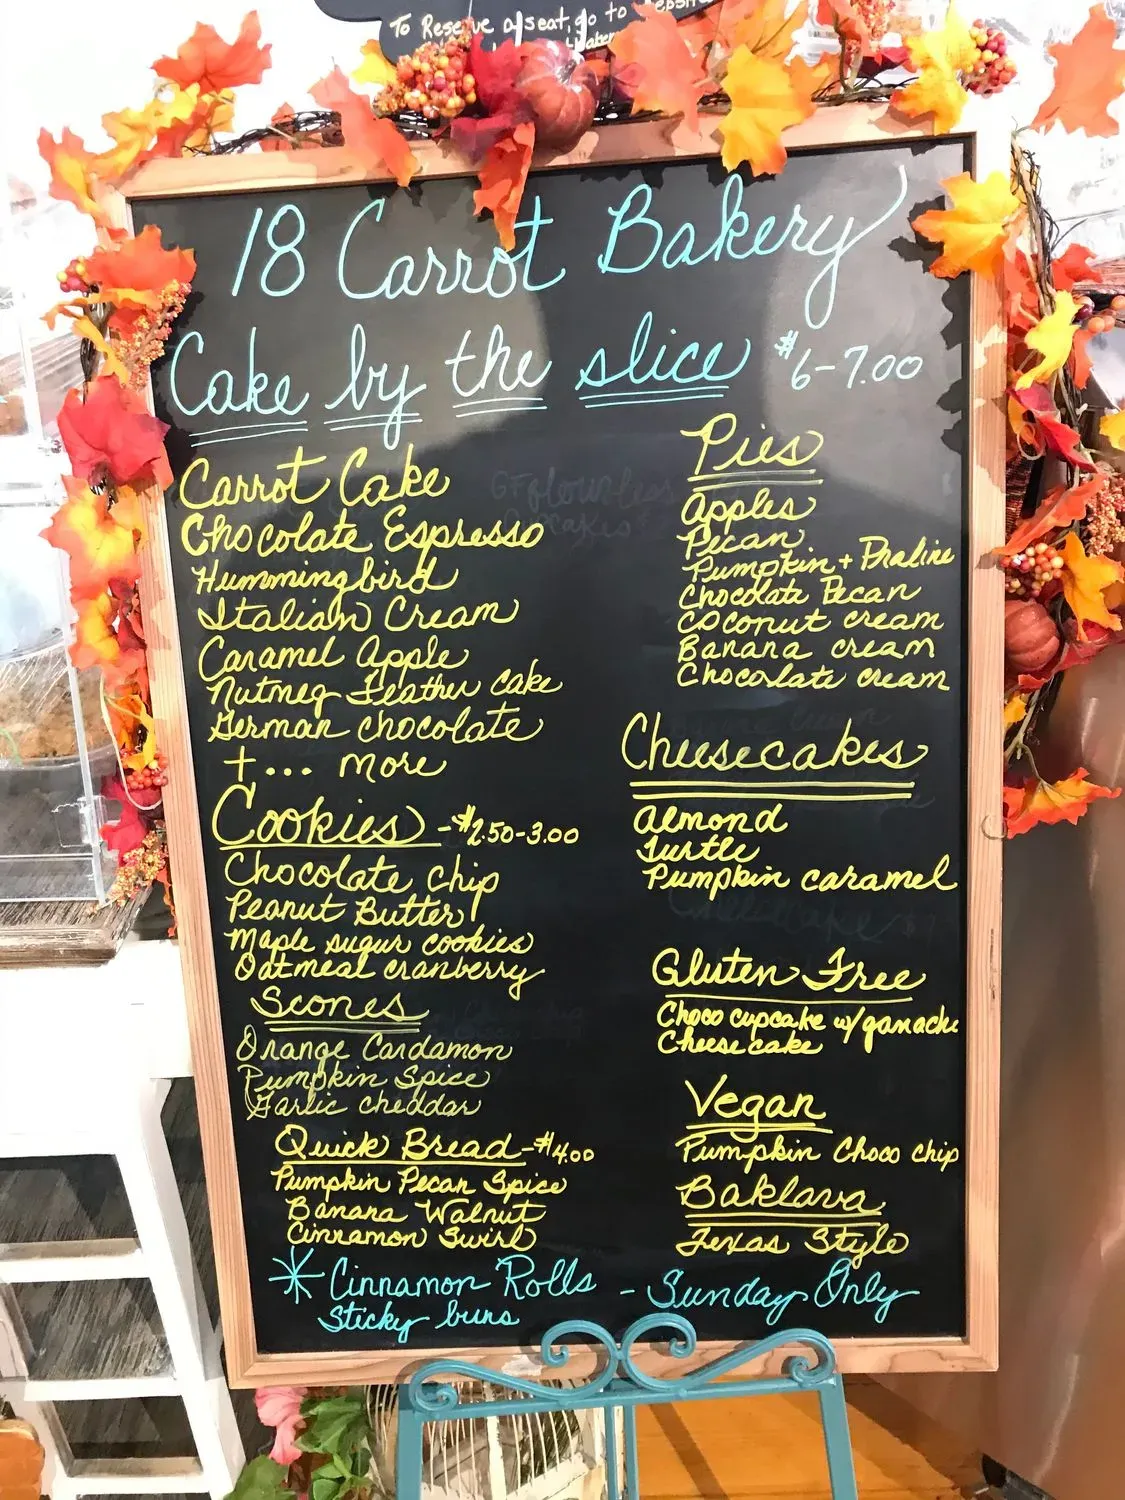 To Reserve a seat, go to
18 Carrot Bakery
Cake by the slice $6-7.00
Carrot Cake
Chocolate Espresso
Hummingbird
Italian Cream
Caramel Apple
Nutmeg Feather cake
German chocolate
+... more
Cookies - $2.50-3.00
Chocolate chip
Peanut Butter
Maple sugar cookies
Oatmeal cranberry
Scones
Orange Cardamon
Pumpkin Spice
Garlic cheddar
Quick Bread - $4.00
Pumpkin Pecan Spice
Banana Walnut
Cinnamon Swirl
Pies
Apples
Pecan
Pumpkin + Praline
Chocolate Pecan
Coconut cream
Banana cream
Chocolate cream
Cheesecakes
Almond
Turtle
Pumpkin caramel
Gluten Free
Choco cupcake w/ganache
Cheese cake
Vegan
Pumpkin Choco chip
Baklava
Texas Style
* Cinnamon Rolls - Sunday Only
Sticky buns